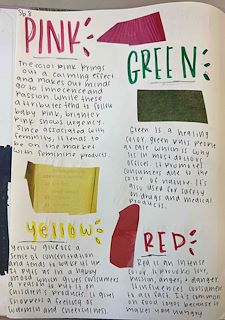 PINK
The color pink brings
out a calming effect
and makes our minds
go to innocence and
passion. While these
attributes tend to follow
baby pink, brighter
pink shows urgency.
Since associated with
femininity, it tends to
be on the market
with feminine products.
GREEN
Green is a healing
color. green puts people
at ease which is why
its in most doctors
offices. It promotes
consumers due to the
color of nature. It's
also used for
in drugs and medical
products.
Yellow
Yellow gives us a
sense of concentration
and tends to wake us up.
It puts us in a happy
mood which gives consumers
a reason to put it on
children's products. It gives
viewers a feeling of
warmth and cheerfulness.
RED
Red is an intense
color. It provokes love,
passion, anger, + danger
It influences consumers
to act fast. It's common
on food logos because it
makes you hungry